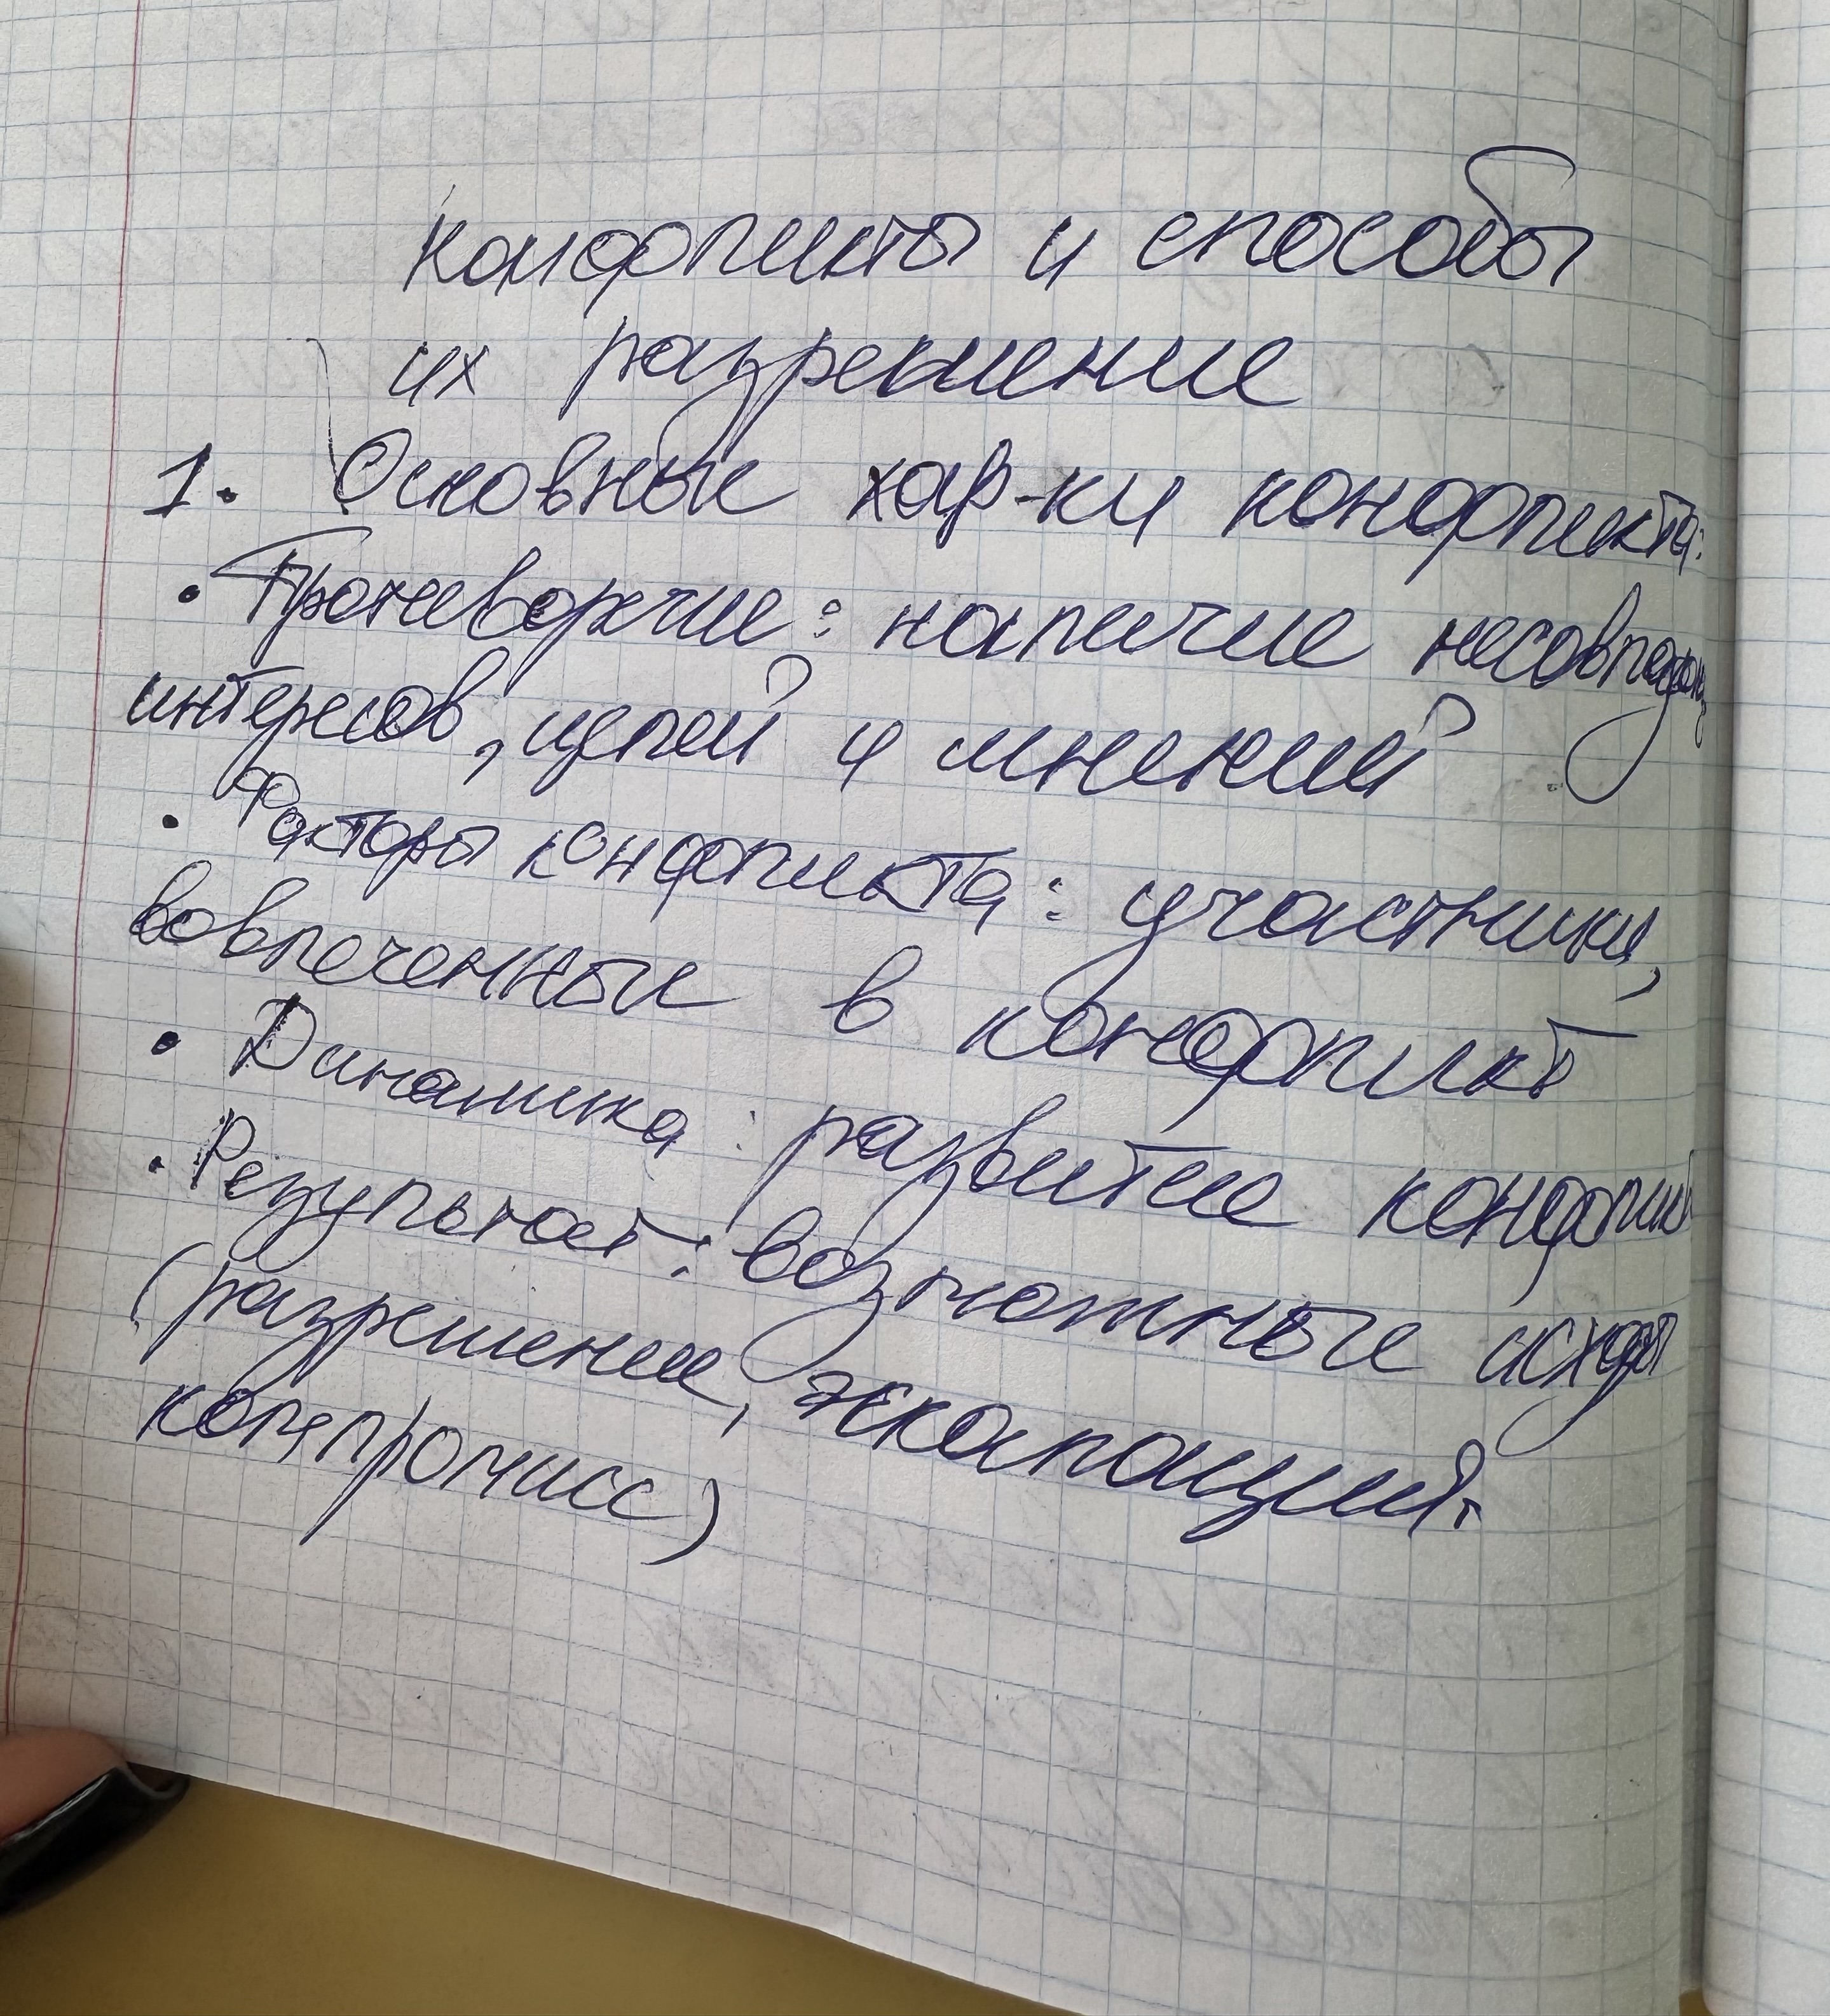 Конфликты и способы
их разрешение
1. Основные хар-ки конфликта:
• Противоречие: наличие
интересов, целей и мнений
• Факторы конфликта: участники,
вовлеченные в конфликт
• Динамика: развитие
• Результат: возможные исходы
(разрешение, эскалация,
компромисс)